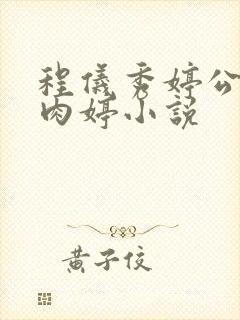 程儀秀婷公
肉婷小說
黃子佼